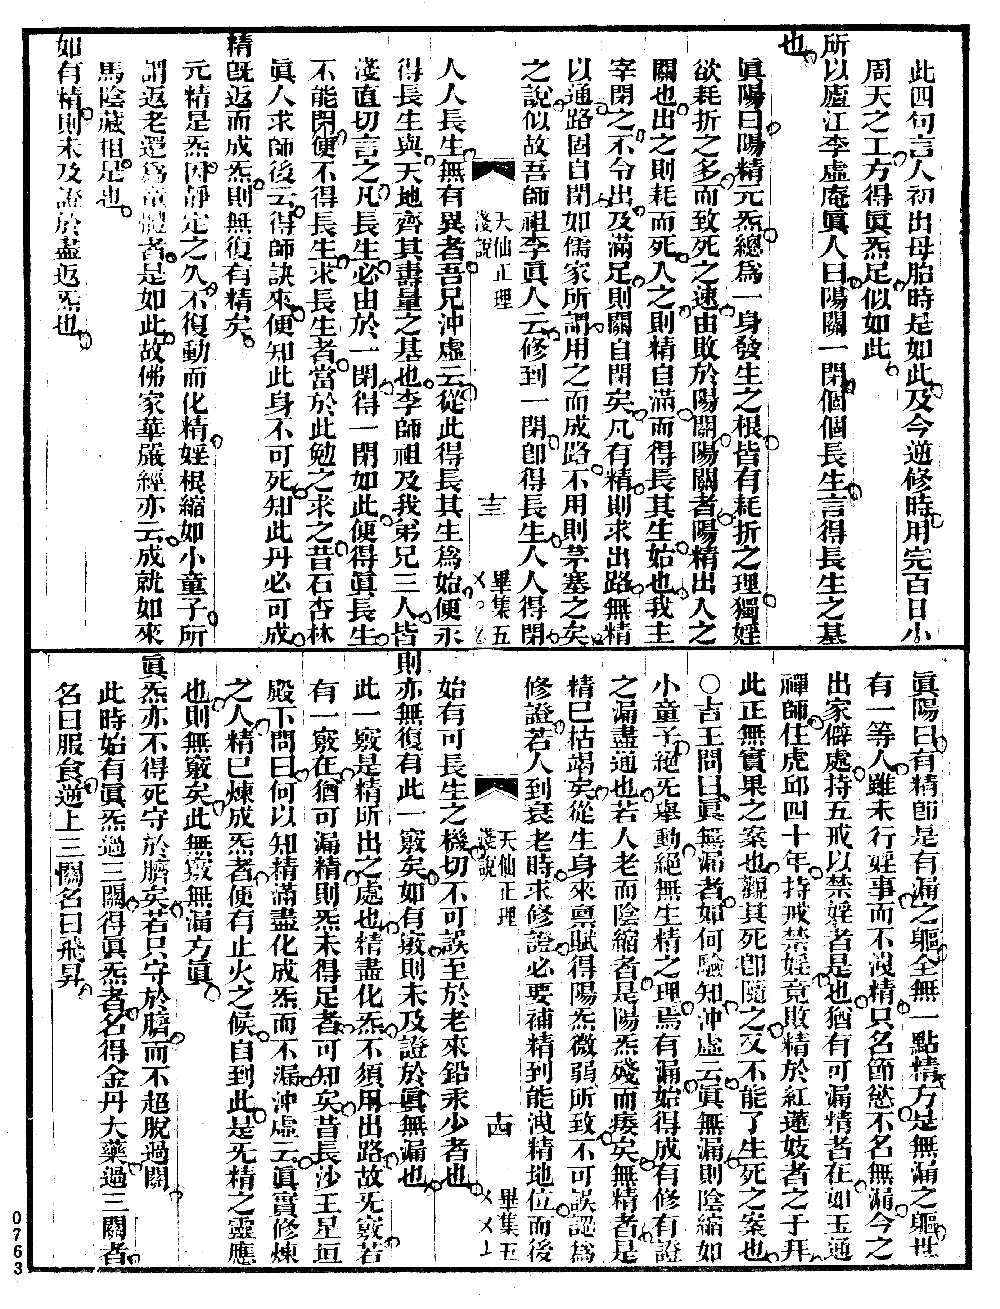 此四句言人初出母胎時是如此及今逆修時用完百日小
周天之工方得眞炁足似如此
所以廬江李虛庵眞人曰陽關一閉個個長生言得長生之基
也
眞陽曰陽精元炁總爲一身發生之根皆有耗折之理獨婬
欲耗折之多而致死之速由敗於陽關陽關者陽精出入之
關也出之則耗而死入之則精自滿而得長其生始也我主
宰閉之不令出及滿足則關自閉矣凡有精則求出路無精
以通路固自閉如儒家所謂用之而成路不用則茅塞之矣
之說似故吾師祖李眞人云修到一閉卽得長生人人得閉
天仙正理
淺說
畢集五
人人長生無有異者吾兄沖虛云從此得長其生爲始便永
得長生與天地齊其壽量之基也李師祖及我弟兄三人皆
淺直切言之凡長生必由於一閉得一閉如此便得眞長生
不能閉便不得長生求長生者當於此勉之求之昔石杏林
眞人求師後云得師訣來便知此身不可死知此丹必可成
精旣返而成炁則無復有精矣
元精是炁因靜定之久不復動而化精婬根縮如小童子所
謂返老還爲童體者是如此故佛家華嚴經亦云成就如來
馬陰藏相是也
如有精則未及證於盡返炁也
眞陽曰有精卽是有漏之軀全無一點精方是無漏之軀世
有一等人雖未行婬事而不洩精只名節慾不名無漏今之
出家僻處持五戒以禁婬者是也猶有可漏精者在如玉通
禪師住虎邱四十年持戒禁婬竟敗精於紅蓮妓者之手拜
此正無實果之案也觀其死卽隨之又不能了生死之案也
○吉王問曰眞無漏者如何驗知沖虛云眞無漏則陰縮如
小童子絕旡舉動絕無生精之理焉有漏始得成有修有證
之漏盡通也若人老而陰縮者是陽炁殘而痿矣無精者是
精已枯竭矣從生身來禀賦得陽炁微弱所致不可誤認爲
修證若人到衰老時求修證必要補精到能洩精地位而後
天仙正理
淺說
畢集五
始有可長生之機切不可誤至於老來鉛汞少者也
則亦無復有此一竅矣如有竅則未及證於眞無漏也
此一竅是精所出之處也精盡化炁不須用出路故旡竅若
有一竅在猶可漏精則炁未得足者可知矣昔長沙王星垣
殿下問曰何以知精滿盡化成炁而不漏沖虛云眞實修煉
之人精已煉成炁者便有止火之候自到此是旡精之靈應
也則無竅矣此無竅無漏方眞
眞炁亦不得死守於臍矣若只守於臍而不超脫過關
此時始有眞炁過三關得眞炁者名得金丹大藥過三關者
名曰服食逆上三關名曰飛昇
0763